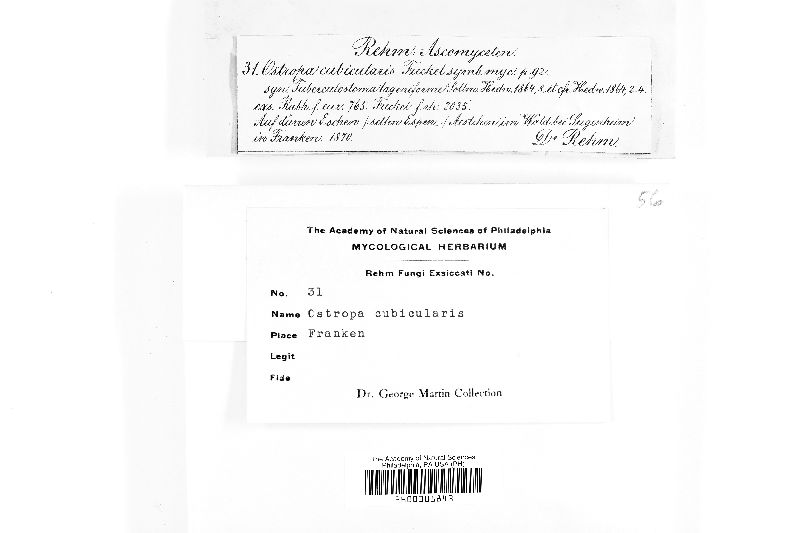 Rehm: Ascomyceten.
31. Ostropa cubicularis Fuckel symb. myc. p. 92.
syn. Tuberculostoma lageniforme Sollm. Hedw. 1864, 8. et cfr. Hedw. 1864, 2-4.
exs. Rabh. f. eur. 765. Fuckel f. rh. 2035.
Auf dürren Eschen / selten Espen / Aestchen im Wald bei Sugenheim
in Franken. 1870. Dr. Rehm.
56
The Academy of Natural Sciences of Philadelphia
MYCOLOGICAL HERBARIUM
Rehm Fungi Exsiccati No.
No. 31
Name Ostropa cubicularis
Place Franken
Legit
Fide
Dr. George Martin Collection
The Academy of Natural Sciences
Philadelphia, PA USA (PH)